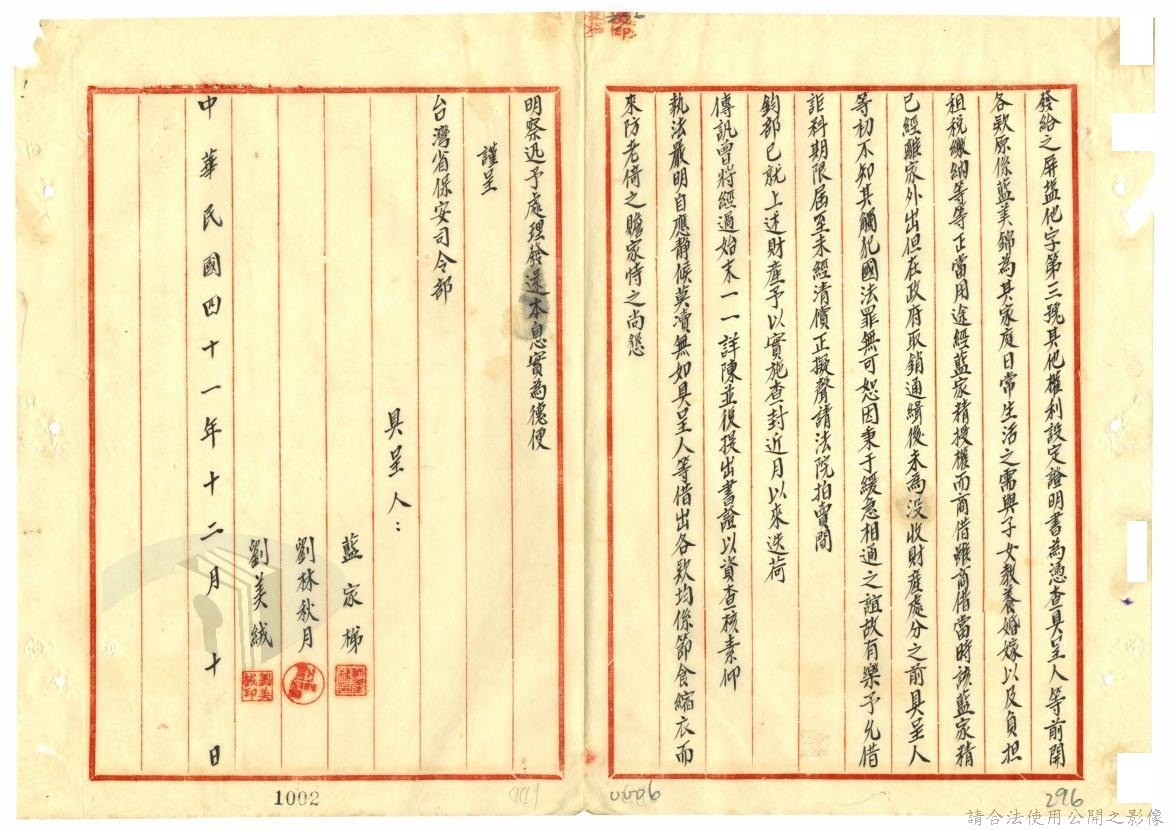 發給之屏塩他字第三號其他權利設定證明書為憑查具呈人等前開
各欵原係藍美錦為其家庭日常生活之需與子女教養婚嫁以及負担
租稅繳納等等正當用途經藍家精授權而商借雖商借當時該藍家精
已經離家外出但在政府取銷通緝後未為没收財產處分之前具呈人
等初不知其觸犯國法罪無可恕因秉于緩急相通之誼故有樂予允借
詎料期限屆至未經清償正擬聲請法院拍賣間
鈞部已就上述財產予以實施查封近月以來迭荷
傳訊曾將經過始末一一詳陳並復提出書證以資查核素仰
執法嚴明自應靜候莫瀆無如具呈人等借出各欵均係節食縮衣而
來防老倚之贍家恃之尚懇
明察迅予處理發還本息實為德便
謹呈
台灣省保安司令部
具呈人：
藍家梯
劉林秋月
劉美絨
劉美絨印
中華民國四十一年十二月十日
1002
0606
296
請合法使用公開之影像